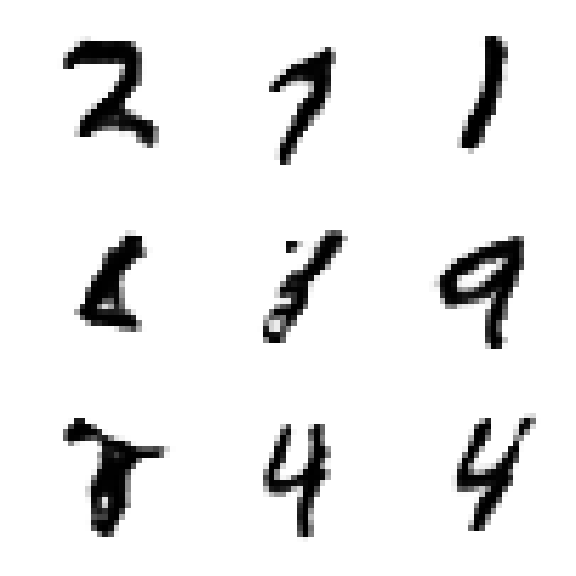 2 7 1
6 8 9
8 4 4